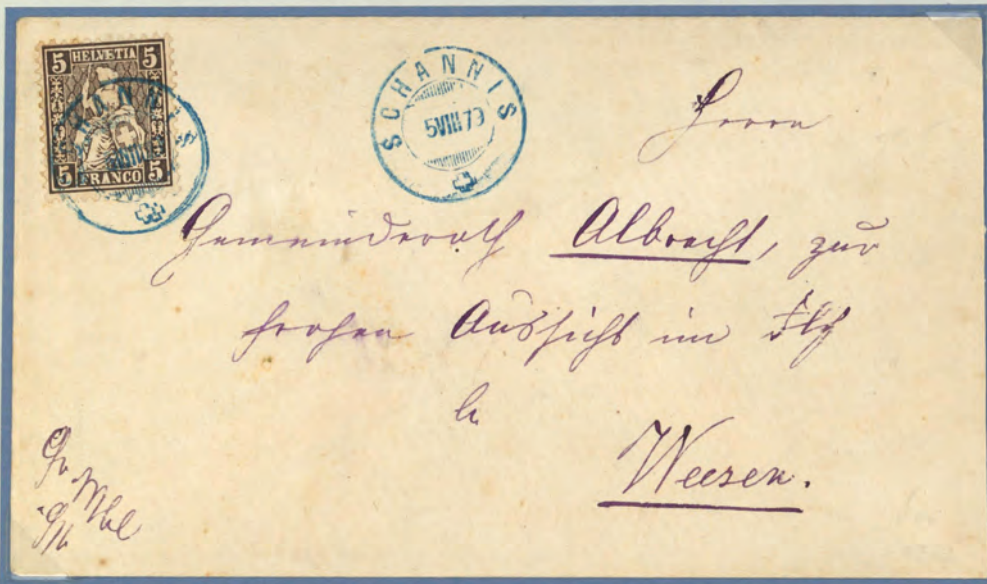 5 HELVETIA 5
5 FRANCO 5
SCHANNIS
5 VIII 79
Herrn
Gemeinderath Albrecht, zur
frohen Aussicht im Fly
Weesen.